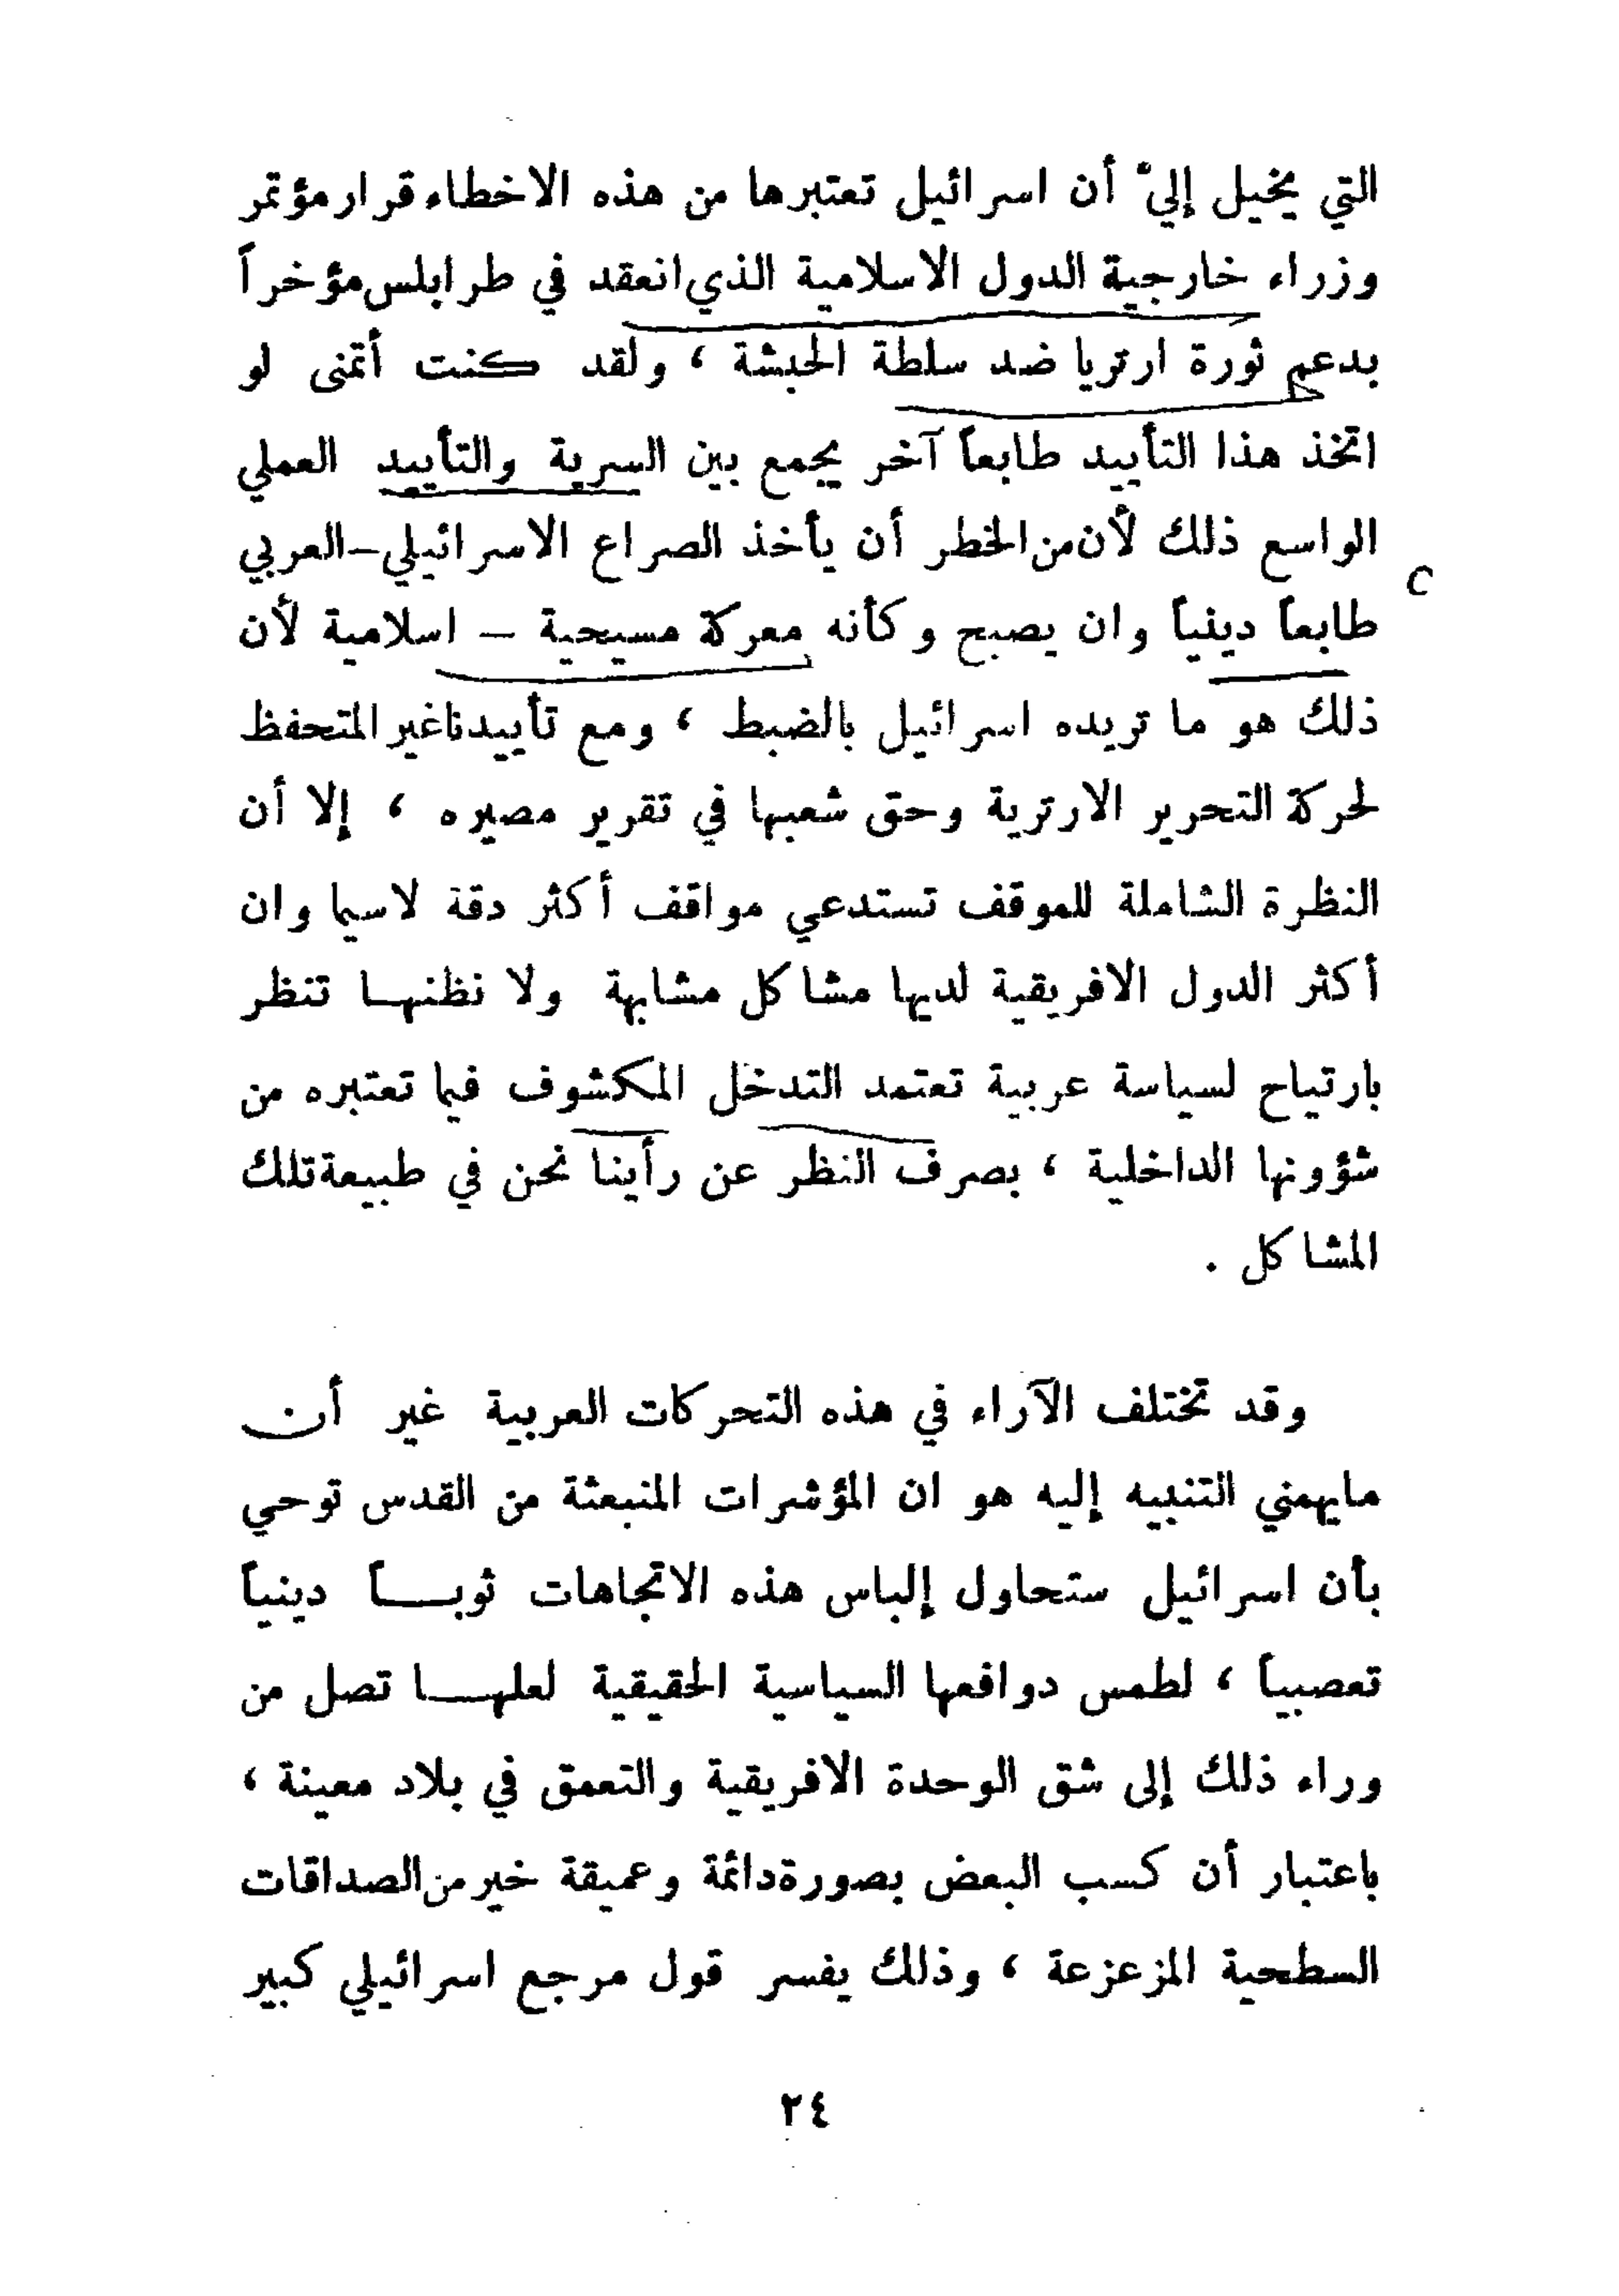 التي يخيل إليّ أن اسرائيل تعتبرها من هذه الاخطاء قرار مؤتمر
وزراء خارجية الدول الاسلامية الذي انعقد في طرابلس مؤخراً
بدعم ثورة ارتريا ضد سلطة الحبشة ، ولقد كنت أتمنى لو
اتخذ هذا التأييد طابعاً آخر يجمع بين السرية والتأييد العملي
الواسع ذلك لأن من الخطر أن يأخذ الصراع الاسرائيلي–العربي
طابعاً دينياً وان يصبح وكأنه معركة مسيحية – اسلامية لأن
ذلك هو ما تريده اسرائيل بالضبط ، ومع تأييدنا غير المتحفظ
لحركة التحرير الارترية وحق شعبها في تقرير مصيره ، إلا أن
النظرة الشاملة للموقف تستدعي مواقف أكثر دقة لاسيما وان
أكثر الدول الافريقية لديها مشاكل مشابهة ولا نظنهـا تنظر
بارتياح لسياسة عربية تعتمد التدخل المكشوف فيما تعتبره من
شؤونها الداخلية ، بصرف النظر عن رأينا نحن في طبيعة تلك
المشاكل .
وقد تختلف الآراء في هذه التحركات العربية غير أن
مايهمني التنبيه إليه هو ان المؤشرات المنبعثة من القدس توحي
بأن اسرائيل ستحاول إلباس هذه الاتجاهات ثوبـــاً دينياً
تعصبياً ، لطمس دوافعها السياسية الحقيقية لعلهـــا تصل من
وراء ذلك إلى شق الوحدة الافريقية والتعمق في بلاد معينة ،
باعتبار أن كسب البعض بصورة دائمة وعميقة خير من الصداقات
السطحية المزعزعة ، وذلك يفسر قول مرجع اسرائيلي كبير
٢٤